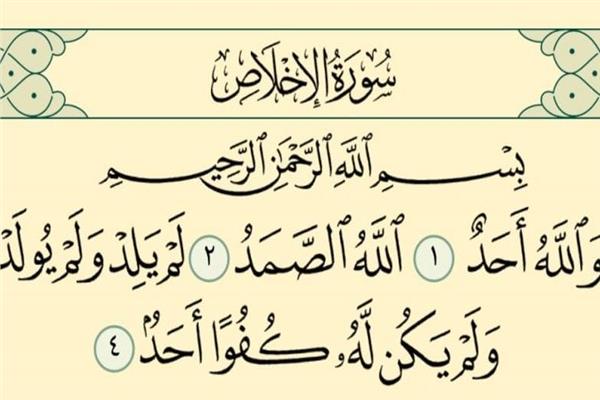 سُورَةُ الإِخْلَاصِ
بِسْمِ ٱللَّهِ ٱلرَّحْمَٰنِ ٱلرَّحِيمِ
ٱللَّهُ أَحَدٌ ١ ٱللَّهُ ٱلصَّمَدُ ٢ لَمْ يَلِدْ وَلَمْ يُولَدْ
وَلَمْ يَكُن لَّهُۥ كُفُوًا أَحَدٌۢ ٤